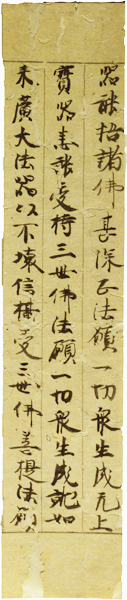 器能悟諸佛甚深正法願一切衆生成无上
寶器悉能受持三世佛法願一切衆生成就如
来廣大法器以不壞信攝受三世佛菩提法願